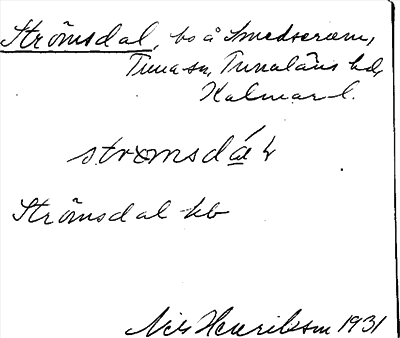 Strömsdal, bs å Smedserum,
Tuna sn, Tunaläns hd,
Kalmar l.
stromsdál
Strömsdal kb
Nils Henriksson 1931